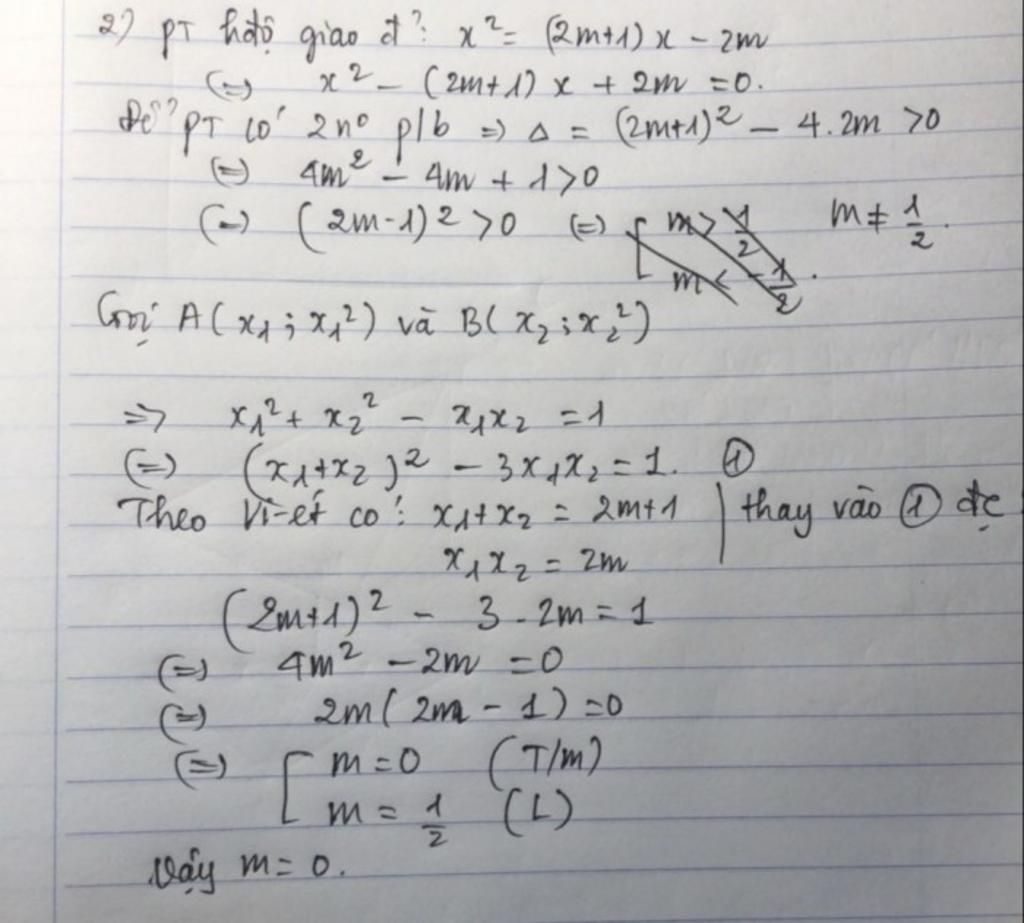 2) PT hđộ giao đ²: x² = (2m+1)x - 2m
(=) x² - (2m+1)x + 2m = 0.
Để PT có 2 n⁰ p/b => Δ = (2m+1)² - 4.2m > 0
(=) 4m² - 4m + 1 > 0
(=) (2m-1)² > 0 (=) m ≠ 1/2.
Gọi A(x₁; x₁²) và B(x₂; x₂²)
=> x₁² + x₂² - x₁x₂ = 1
(=) (x₁+x₂)² - 3x₁x₂ = 1. ①
Theo Vi-ét có: x₁+x₂ = 2m+1 | thay vào ① đc
x₁x₂ = 2m
(2m+1)² - 3.2m = 1
(=) 4m² - 2m = 0
(=) 2m(2m - 1) = 0
(=) [ m = 0 (T/m)
m = 1/2 (L)
Vậy m = 0.